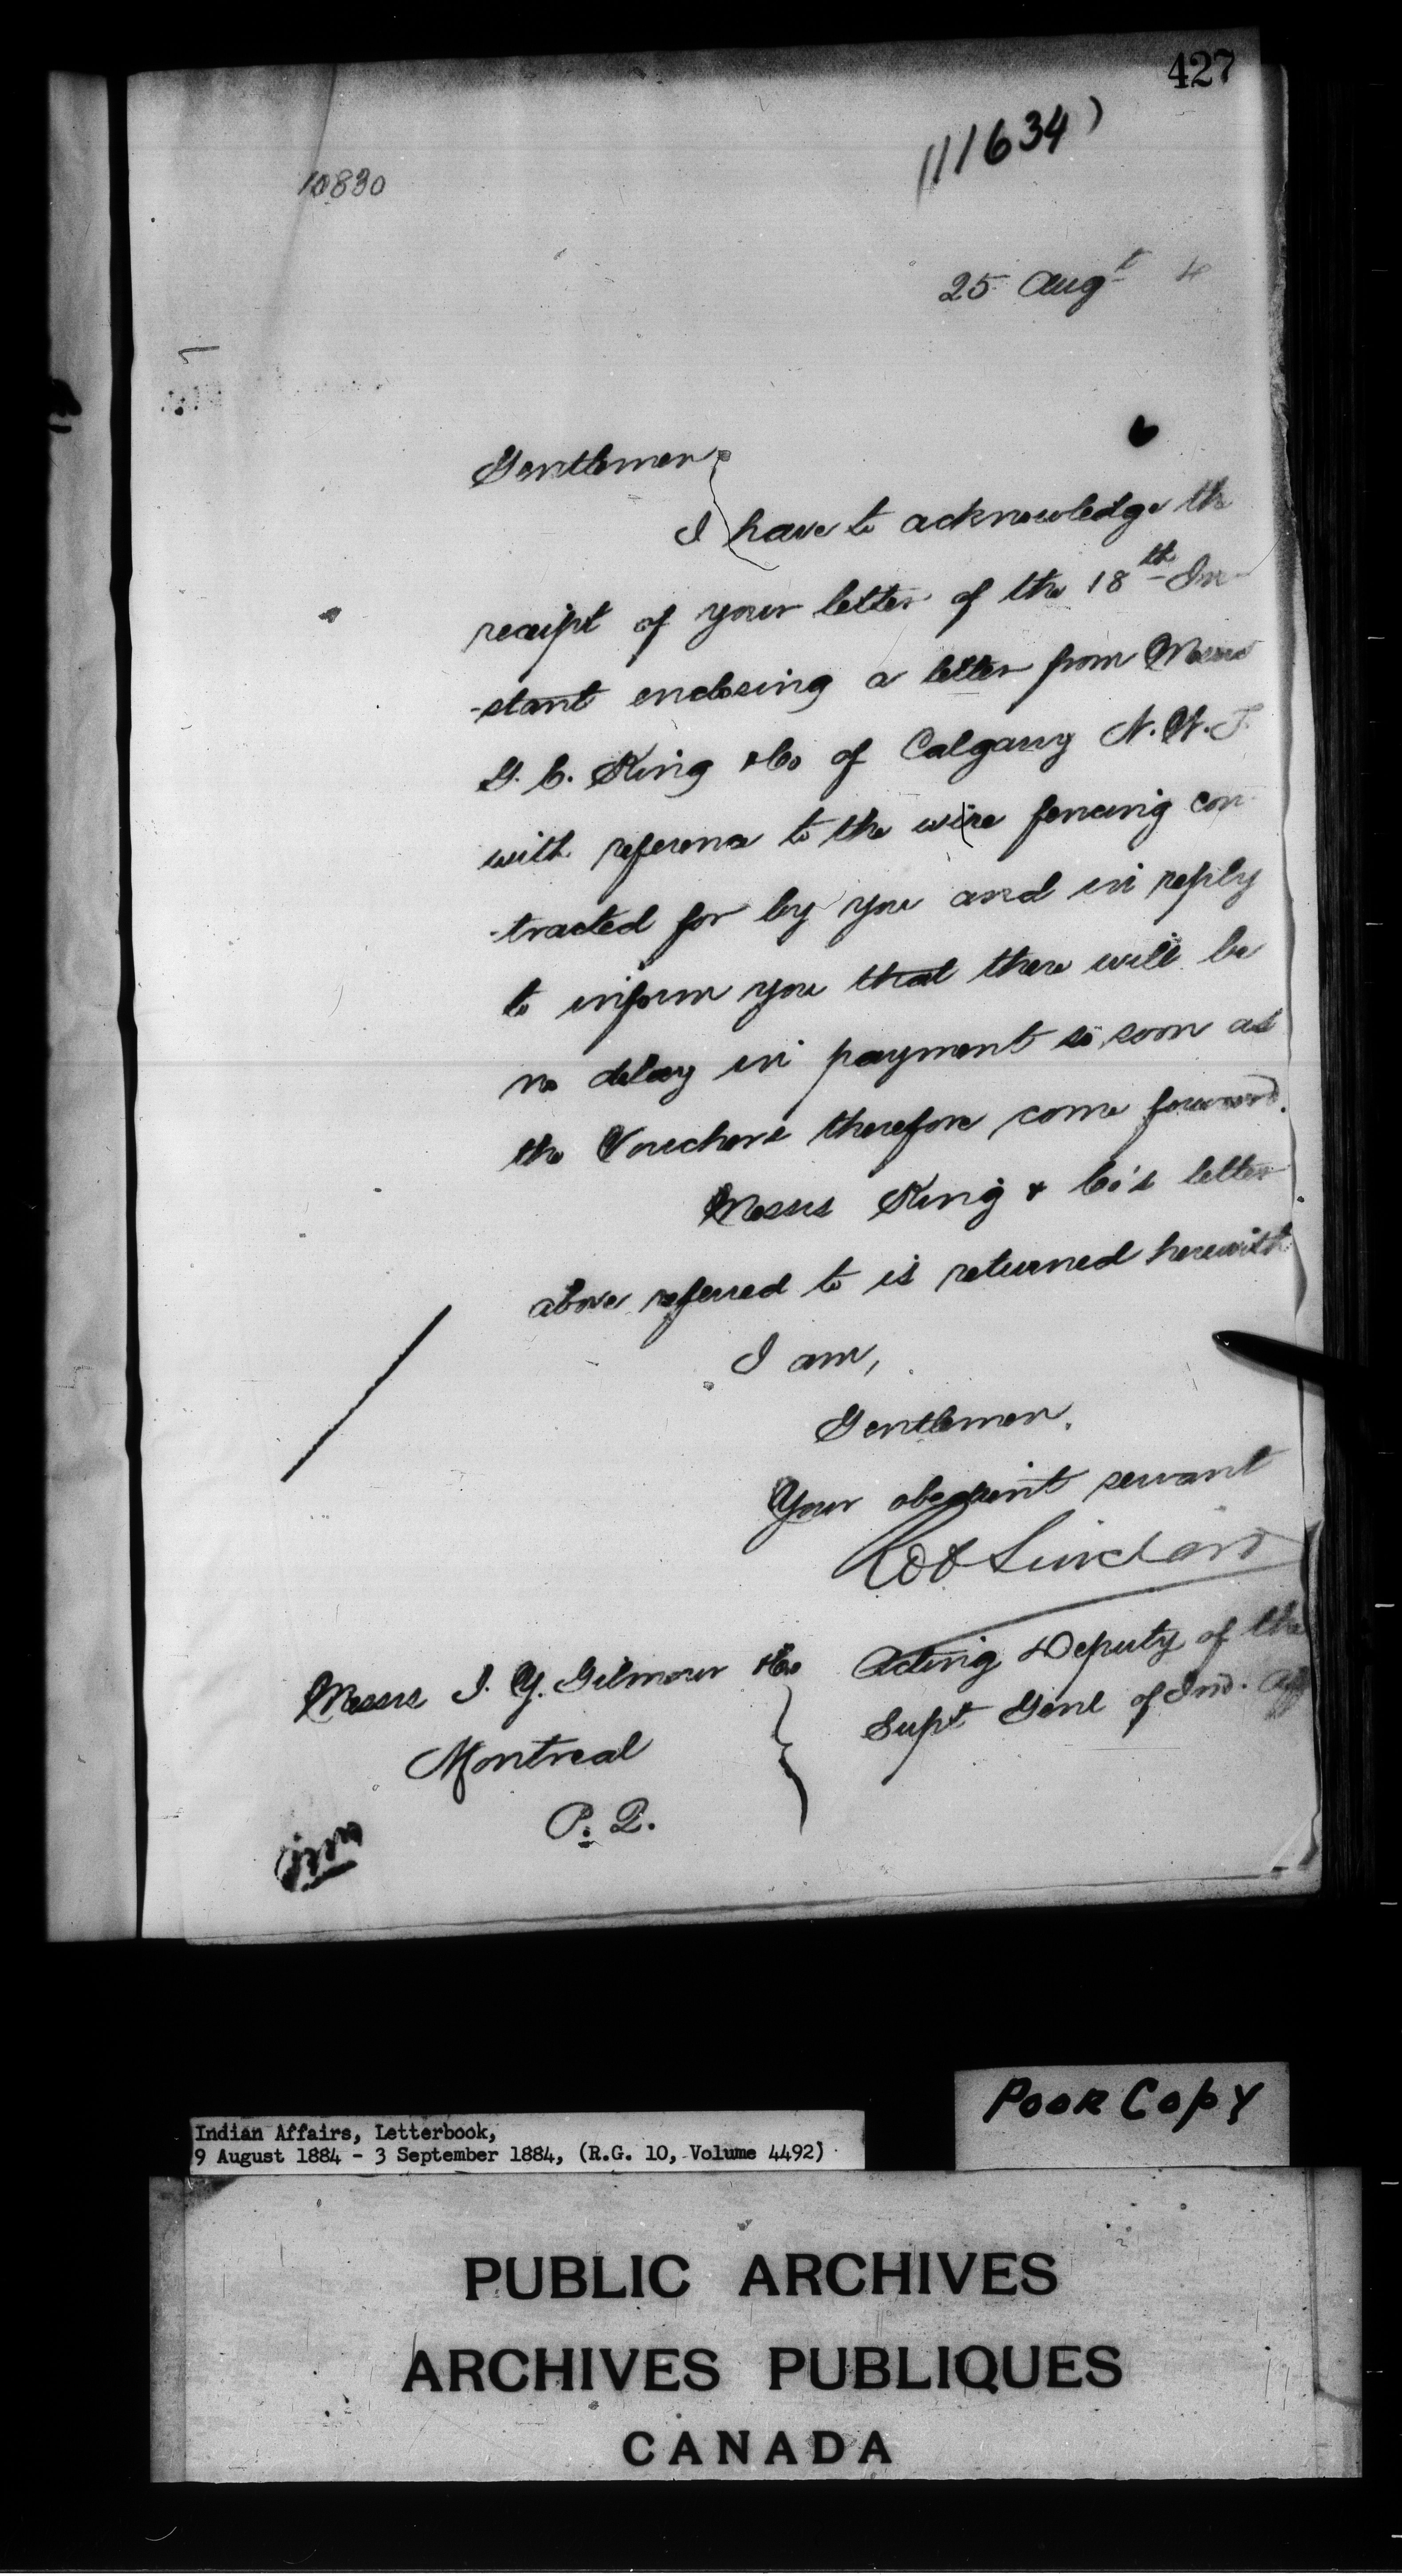 427
111634)
10830
25 Augt 4
Gentlemen,
I have to acknowledge the
receipt of your letter of the 18th In-
-stant enclosing a letter from Messrs
G. C. King & Co of Calgary N.W.T.
with reference to the wire fencing con-
-tracted for by you and in reply
to inform you that there will be
no delay in payment so soon as
the Vouchers therefore come forward.
Messrs King & Co's letter
above referred to is returned herewith
I am,
Gentlemen.
Your obedient servant
Rob Sinclair
Acting Deputy of the
Supt Genl of Ind. Aff
Messrs J. Y. Gilmour & Co
Montreal
P. Q.
Indian Affairs, Letterbook,
9 August 1884 - 3 September 1884, (R.G. 10, Volume 4492)
POOR COPY
PUBLIC ARCHIVES
ARCHIVES PUBLIQUES
CANADA